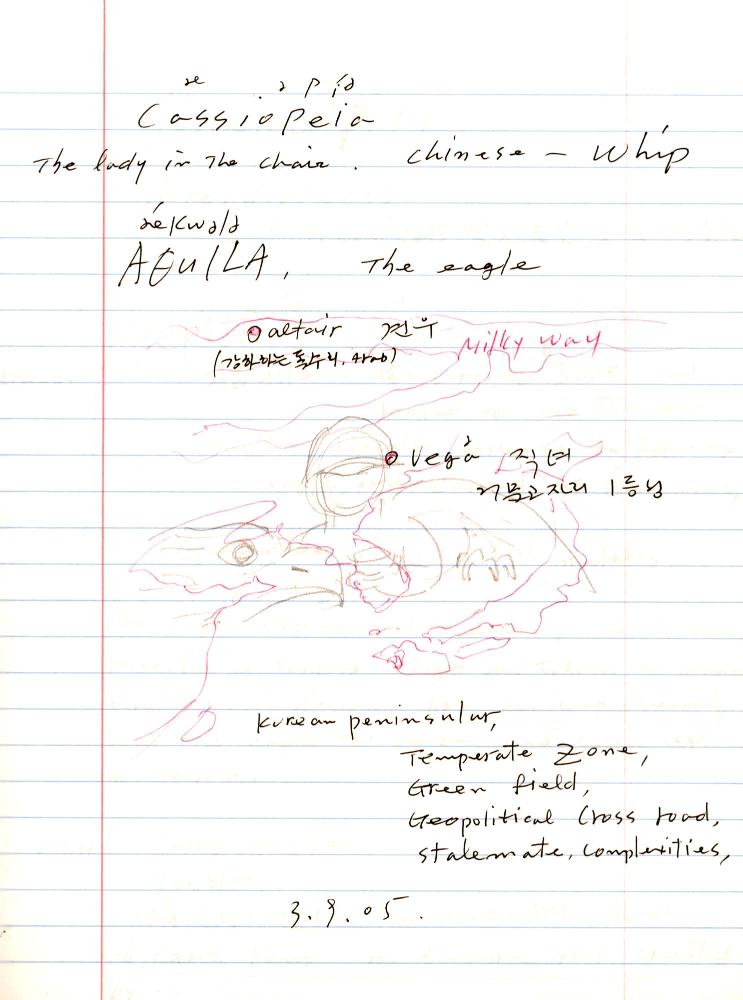 æ ə p íə
Cassiopeia
The lady in The chair. chinese — Whip
ǽkwələ
AQUILA, The eagle
altair 견우
(강하하는 독수리. Arab)
Milky Way
Vega 직녀
거문고자리 1등성
Korean peninsular,
Temperate Zone,
Green field,
Geopolitical Cross road,
stalemate, complexities,
3.9.05.